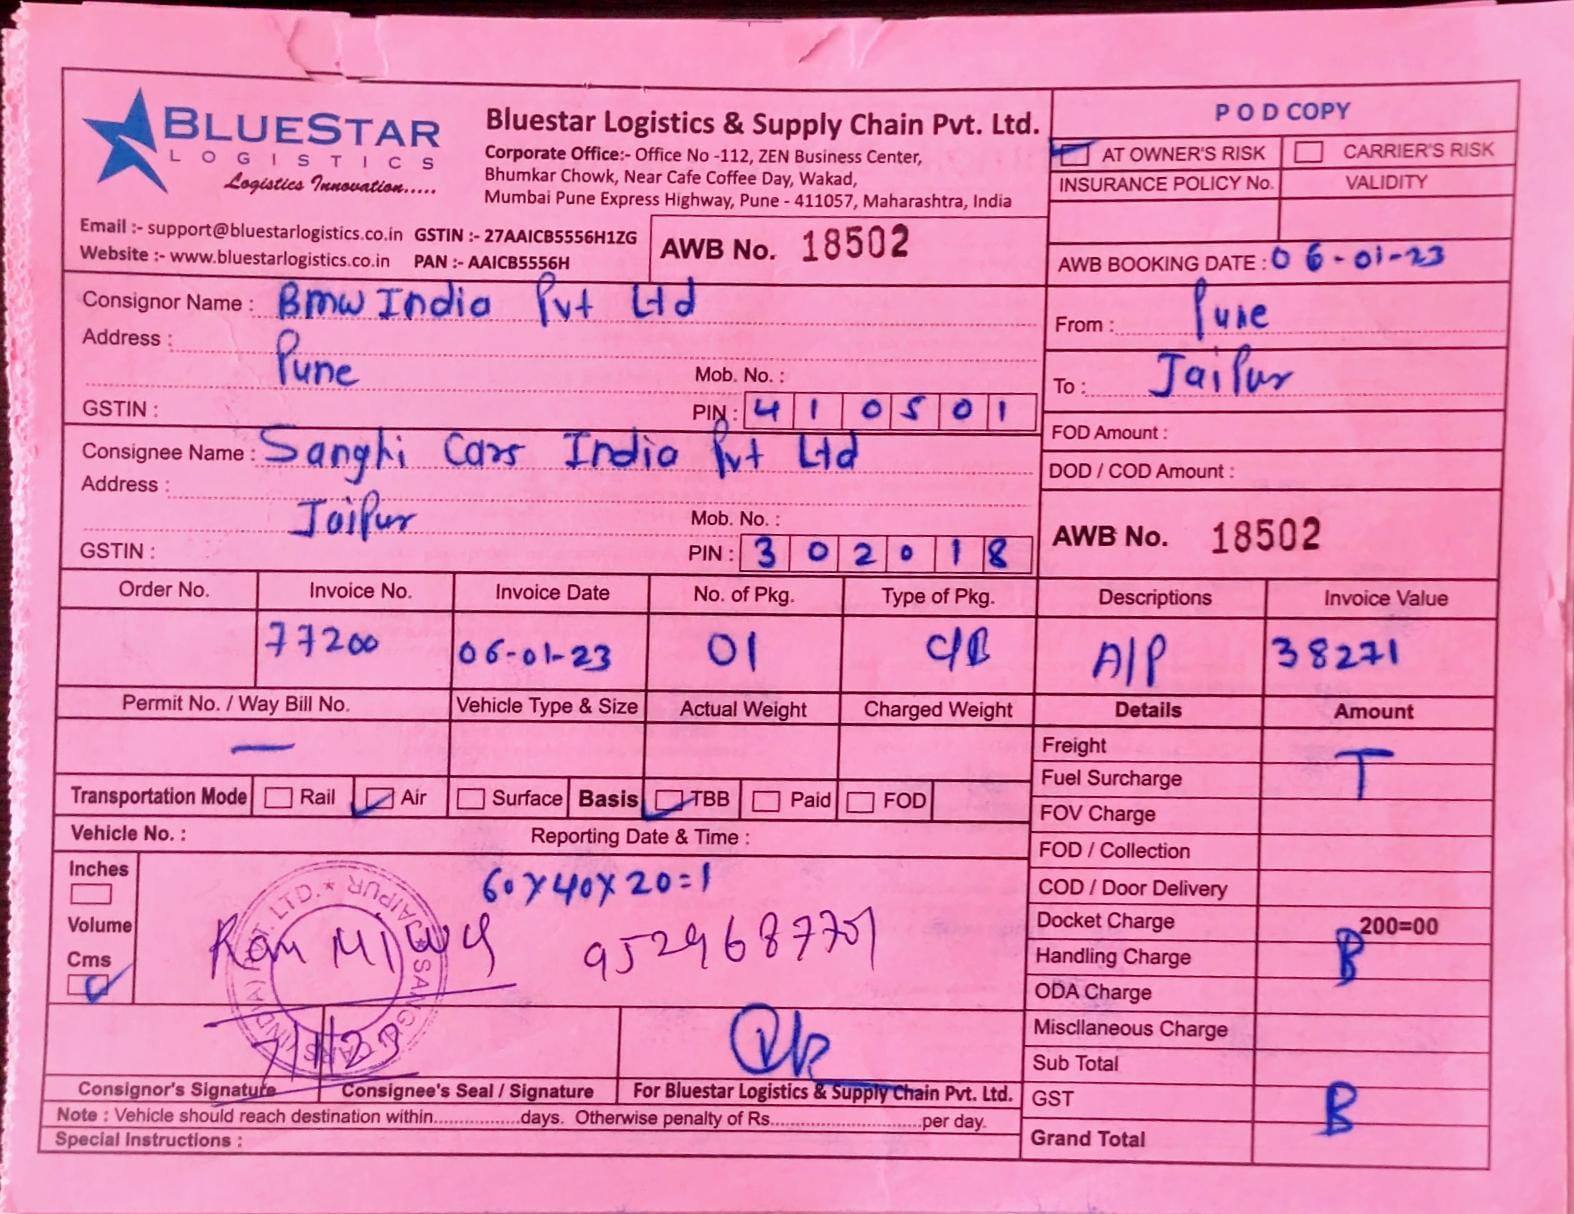 BLUESTAR
LOGISTICS
Logistics Innovation.....
Bluestar Logistics & Supply Chain Pvt. Ltd.
Corporate Office:- Office No -112, ZEN Business Center,
Bhumkar Chowk, Near Cafe Coffee Day, Wakad,
Mumbai Pune Express Highway, Pune - 411057, Maharashtra, India
P O D COPY
AT OWNER'S RISK CARRIER'S RISK
INSURANCE POLICY No. VALIDITY
Email :- support@bluestarlogistics.co.in GSTIN :- 27AAICB5556H1ZG
Website :- www.bluestarlogistics.co.in PAN :- AAICB5556H
AWB No. 18502
AWB BOOKING DATE : 06-01-23
Consignor Name : Bmw India Pvt Ltd
Address :
Pune
Mob. No. :
GSTIN :
PIN : 410501
From : Pune
To : Jaipur
Consignee Name : Sanghi Cars India Pvt Ltd
Address :
Jaipur
Mob. No. :
GSTIN :
PIN : 302018
FOD Amount :
DOD / COD Amount :
AWB No. 18502
Order No. Invoice No. Invoice Date No. of Pkg. Type of Pkg. Descriptions Invoice Value
77200 06-01-23 01 C/B A/P 38271
Permit No. / Way Bill No. Vehicle Type & Size Actual Weight Charged Weight Details Amount
—
Transportation Mode Rail Air Surface Basis TBB Paid FOD
Vehicle No. : Reporting Date & Time :
Inches
Volume
Cms
60X40X20=1
9529687701
7/1/23
Consignor's Signature Consignee's Seal / Signature For Bluestar Logistics & Supply Chain Pvt. Ltd.
Note : Vehicle should reach destination within..................days. Otherwise penalty of Rs...............................per day.
Special Instructions :
Freight
T
Fuel Surcharge
FOV Charge
FOD / Collection
COD / Door Delivery
Docket Charge 200=00
Handling Charge B
ODA Charge
Miscllaneous Charge
Sub Total
GST B
Grand Total